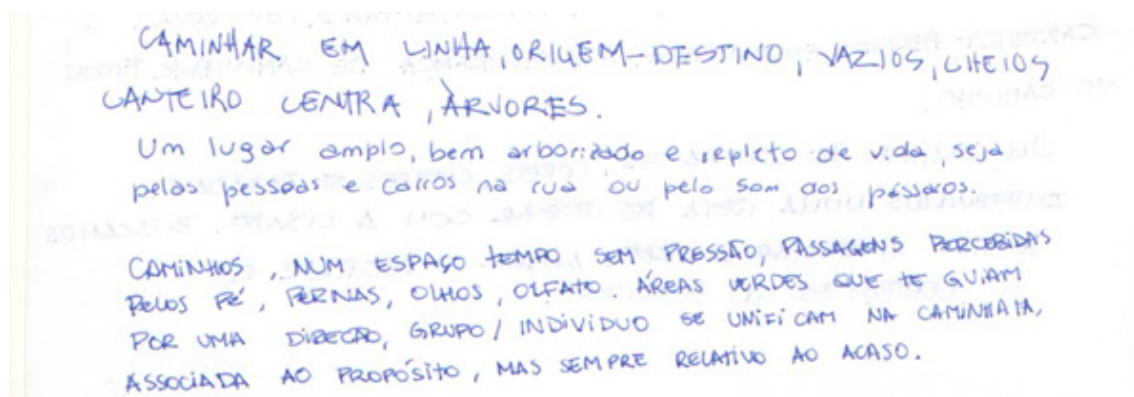 CAMINHAR EM LINHA, ORIGEM-DESTINO, VAZIOS, CHEIOS
CANTEIRO CENTRA, ÁRVORES.
Um lugar amplo, bem arborizado e repleto de vida, seja
pelas pessoas e carros na rua ou pelo som dos pássaros.
CAMINHOS, NUM ESPAÇO TEMPO SEM PRESSÃO, PASSAGENS PERCEBIDAS
PELOS PÉ, PERNAS, OLHOS, OLFATO. ÁREAS VERDES QUE TE GUIAM
POR UMA DIREÇÃO, GRUPO/INDIVIDUO SE UNIFICAM NA CAMINHATA,
ASSOCIADA AO PROPÓSITO, MAS SEMPRE RELATIVO AO ACASO.